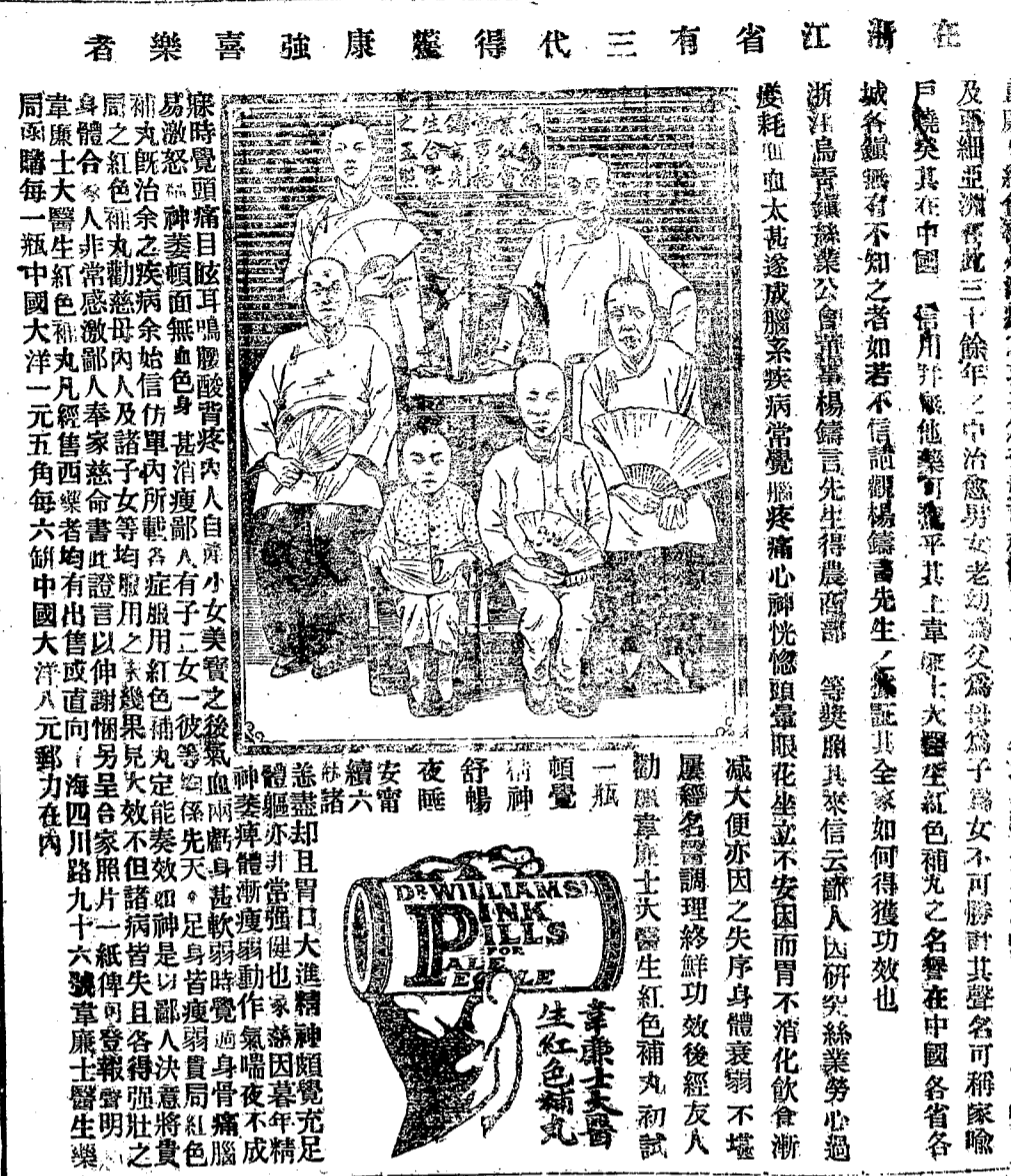 在浙江省有三代得獲康強喜樂者
及亞細亞洲皆此三十餘年之中治愈男女老幼為父為母為子為女不可勝計其聲名可稱家喻
戶曉矣其在中國 信用幷無他藥可 平其上韋廉士大醫生紅色補丸之名譽在中國各省各
城各鎮無有不知之者如若不信請觀楊鑄言先生之 証其全家如何得獲功效也
浙江烏青鎮絲業公會董事楊鑄言先生得農商部 等獎照其來信云鄙人因研究絲業勞心過
度耗 血太甚遂成腦系疾病常覺腦疼痛心神恍惚頭暈眼花坐立不安因而胃不消化飲食漸
减大便亦因之失序身體衰弱不堪
屢經名醫調理終鮮功效後經友人
勸服韋廉士大醫生紅色補丸初試
一瓶
頓覺
精神
舒暢
夜睡
安甯
續六
瓶諸
恙盡却且胃口大進精神頗覺充足
體軀亦非常强健也家慈因暮年精
神萎痺體漸瘦弱動作氣喘夜不成
寐時覺頭痛目眩耳鳴腰酸背疼內人自產小女美寶之後氣血兩虧身甚軟弱時覺過身骨痛腦
易激怒 神萎頓面無血色身 甚消瘦鄙人有子二女一彼等 係先天 足身皆瘦弱貴局紅色
補丸既治余之疾病余始信仿單內所載各症服用紅色補丸定能奏效如神是以鄙人決意將貴
局之紅色補丸勸慈母內人及諸子女等均服用之 幾果見大效不但諸病皆失且各得强壯之
身體合家人非常感激鄙人奉家慈命書此證言以伸謝悃另呈合家照片一紙俾可登報聲明
韋廉士大醫生紅色補丸凡經售西藥者均有出售或直向上海四川路九十六號韋廉士醫生藥
局函購每一瓶中國大洋一元五角每六缾中國大洋八元郵力在內
DR WILLIAMS'
PINK
PILLS
FOR
PALE
PEOPLE
韋廉士大醫
生紅色補丸